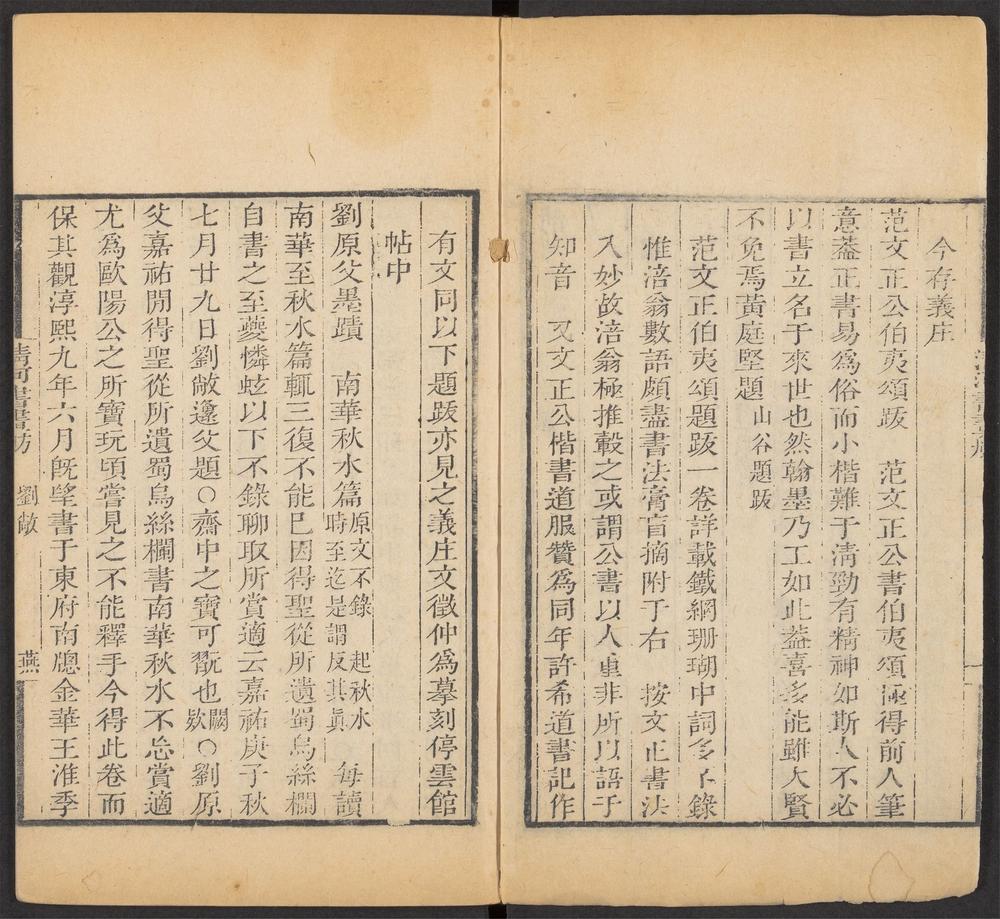 今存義庄
范文正公伯夷頌跋　范文正公書伯夷頌極得前人筆
意葢正書易爲俗而小楷難于淸勁有精神如斯人不必
以書立名于來世也然翰墨乃工如此葢喜多能雖大賢
不免焉黃庭堅題　山谷題跋
范文正伯夷頌題跋一卷詳載鐵網珊瑚中詞多不錄
惟涪翁數語頗盡書法膏盲摘附于右　按文正書法
入妙故涪翁極推轂之或謂公書以人重非所以語于
知音　又文正公楷書道服贊爲同年許希道書記作
有文同以下題跋亦見之義庄文徵仲爲摹刻停雲館
帖中
劉原父墨蹟　南華秋水篇　原文不錄　起秋水時至迄是謂反其眞　每讀
南華至秋水篇輒三復不能已因得聖從所遺蜀烏絲欄
自書之至夔憐蚿以下不錄聊取所賞適云嘉祐庚子秋
七月廿九日劉敞邍父題○齋中之寶可翫也闕欵○劉原
父嘉祐開得聖從所遺蜀烏絲欄書南華秋水不忘賞適
尤爲歐陽公之所寶玩頃嘗見之不能釋手今得此卷而
保其觀淳熙九年六月旣望書于東府南牕金華王淮季
淸河書畫舫　劉敞　燕